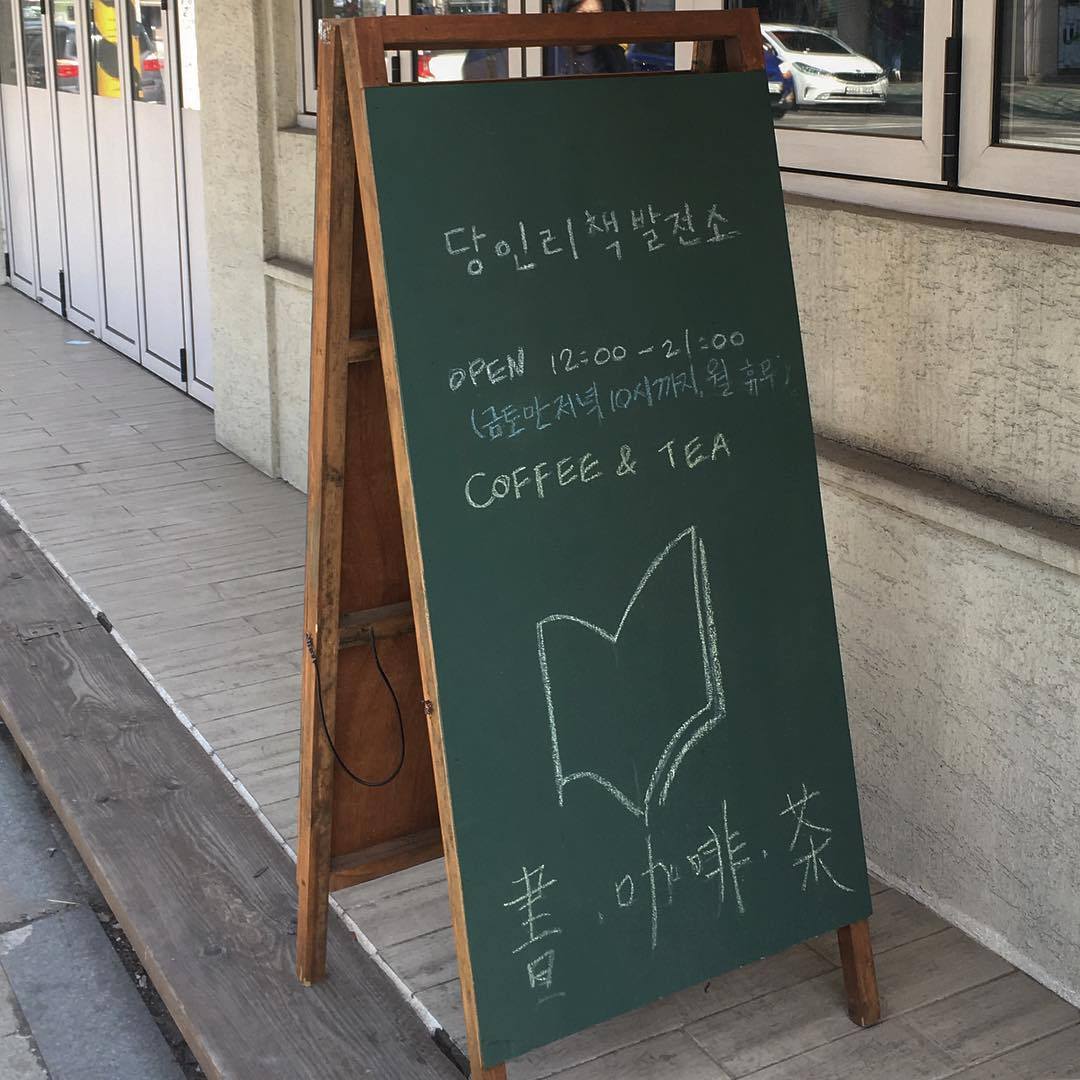 당인리책발전소
OPEN 12:00-21:00
(금토만 저녁 10시까지, 월 휴무)
COFFEE & TEA
書.咖啡.茶